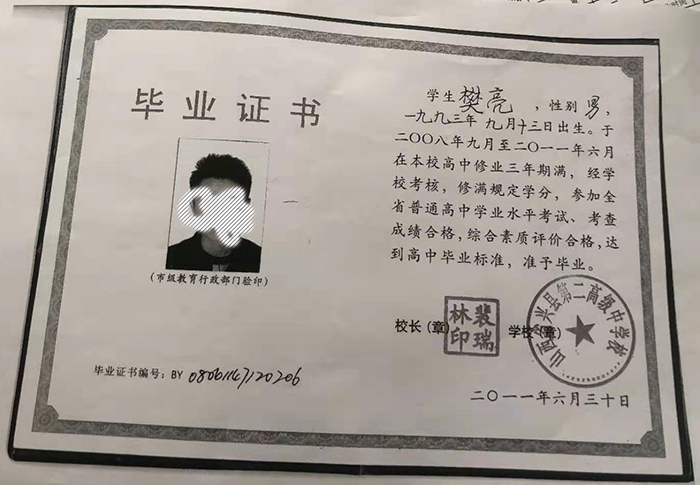 毕业证书
(市级教育行政部门验印)
毕业证书编号：BY 08061147120206
学生樊亮，性别男，
一九九三年九月十三日出生。于
二〇〇八年九月至二〇一一年六月
在本校高中修业三年期满，经学
校考核，修满规定学分，参加全
省普通高中学业水平考试、考查
成绩合格，综合素质评价合格，达
到高中毕业标准，准予毕业。
校长（章）
裴瑞林印
学校（章）
山西省兴县第二高级中学校
二〇一一年六月三十日